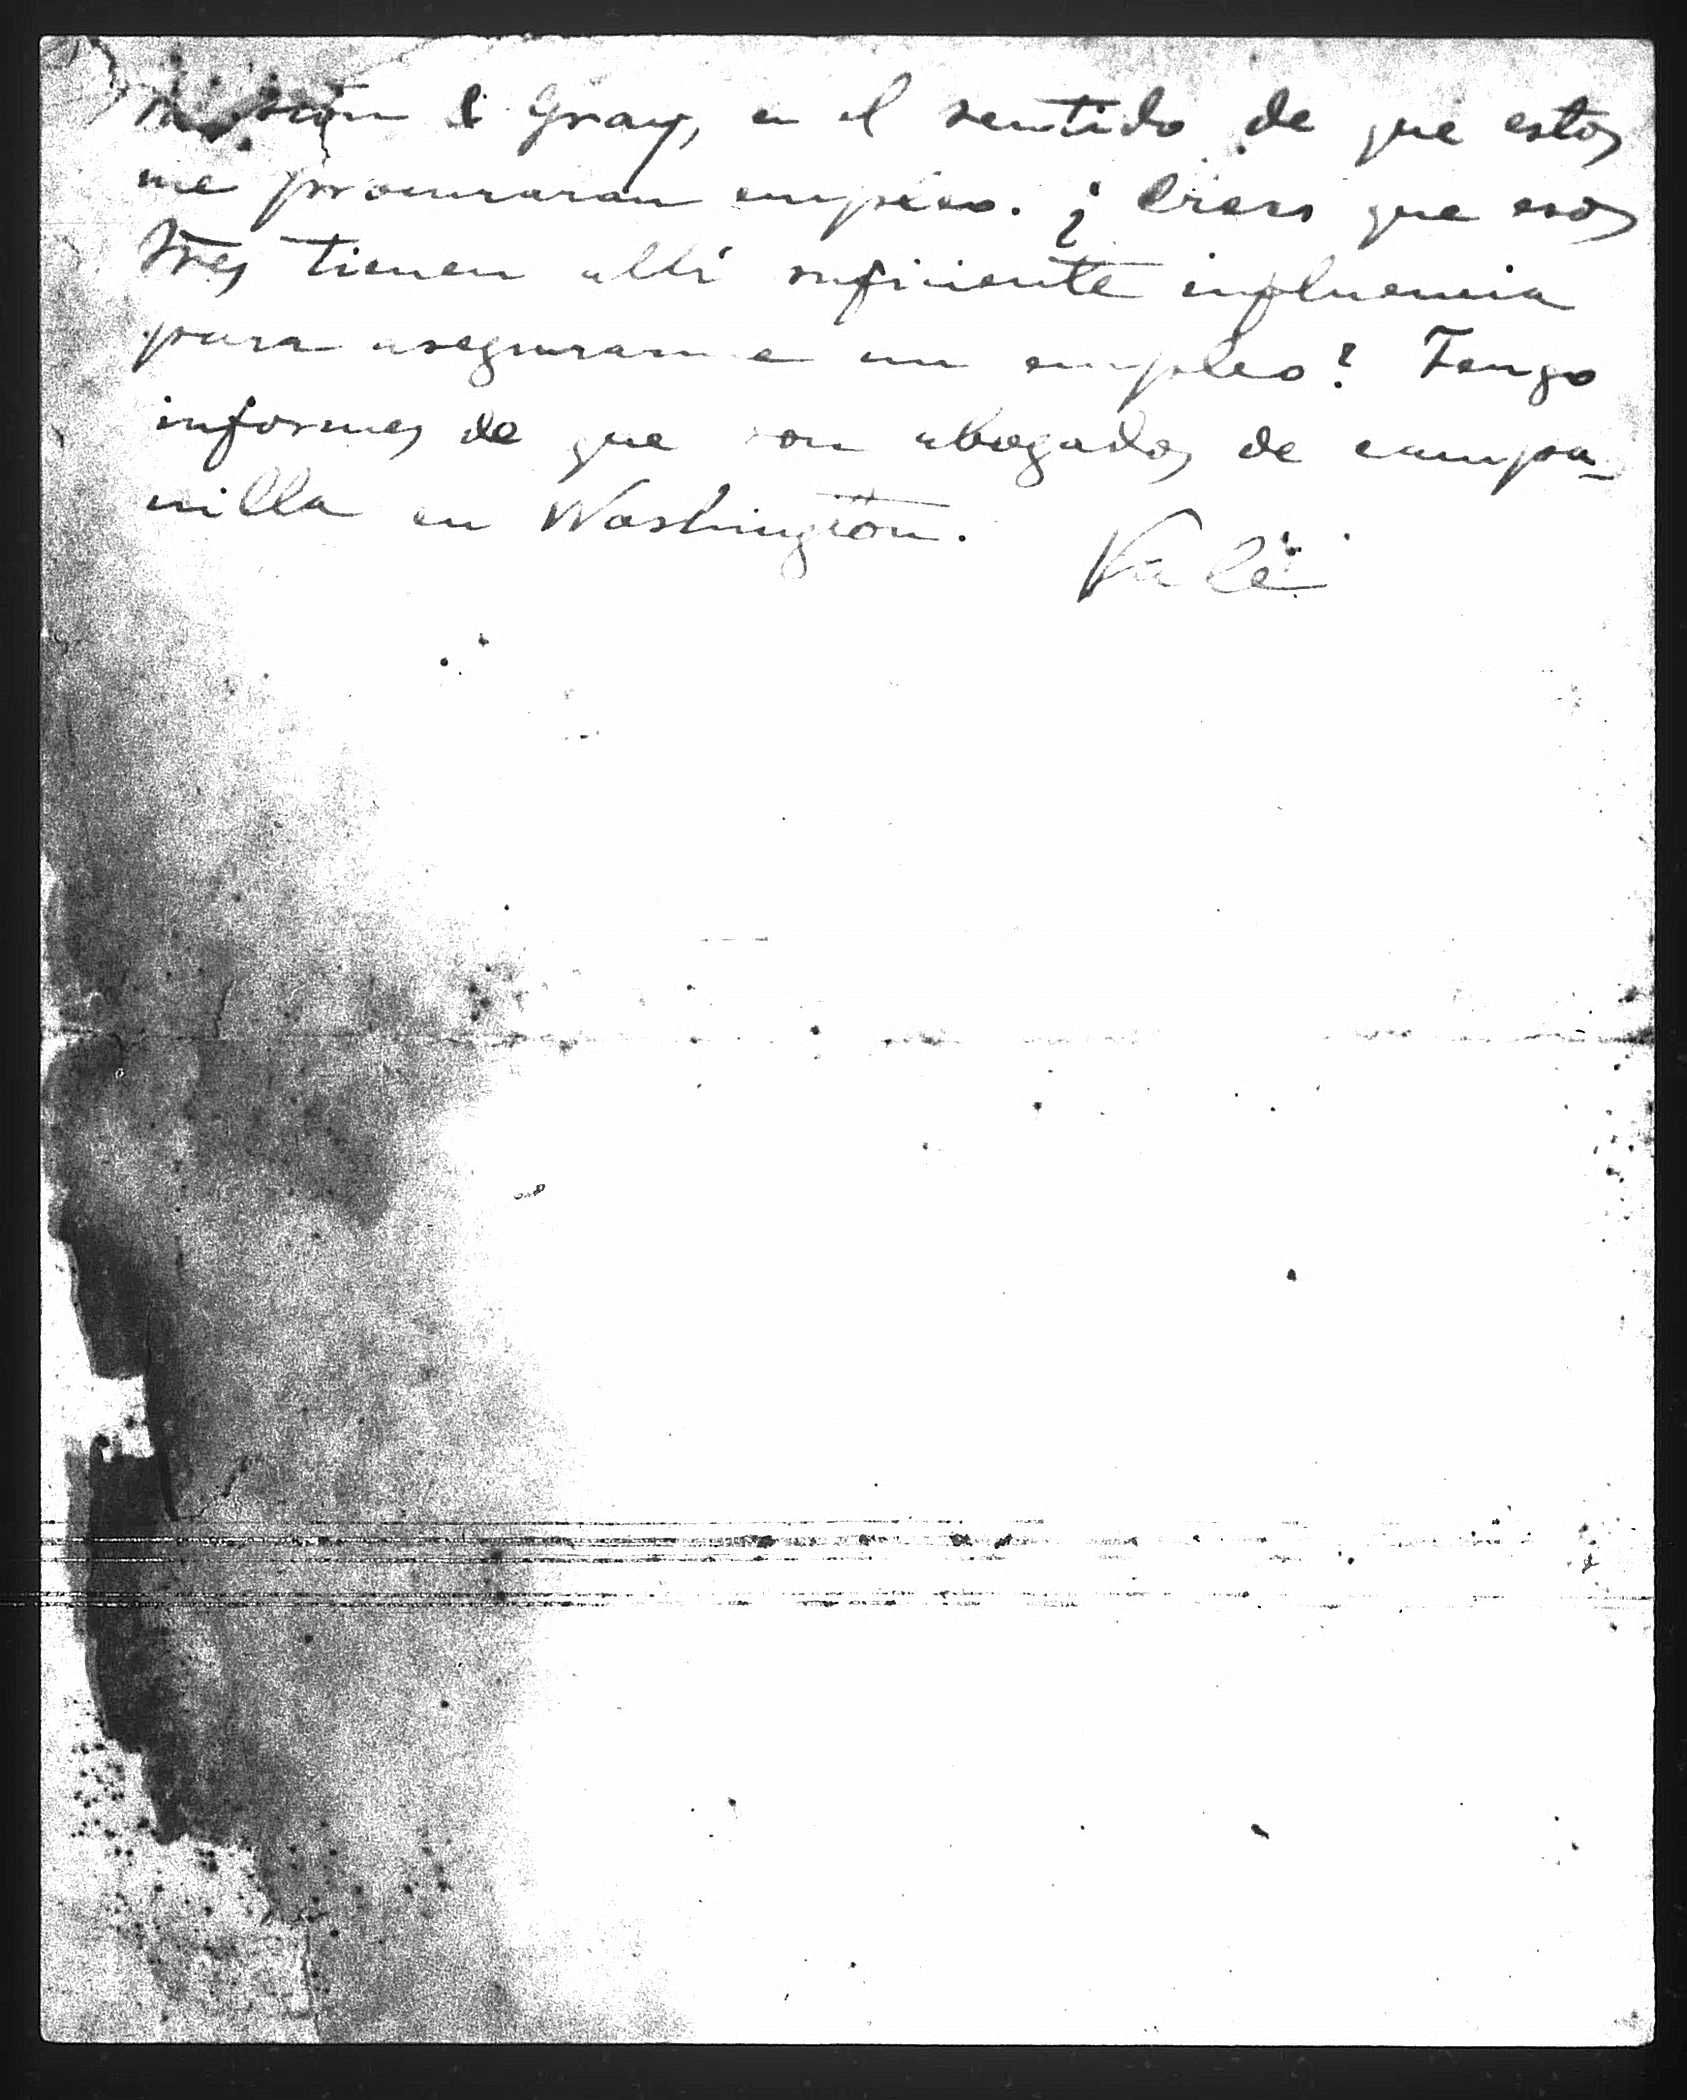 & Gray, en el sentido de que estos
me procuraran empleo. ¿Crees que esos
tres tienen allí suficiente influencia
para asegurarme un empleo? Tengo
informes de que son abogados de campa-
nilla en Washington.
Vale